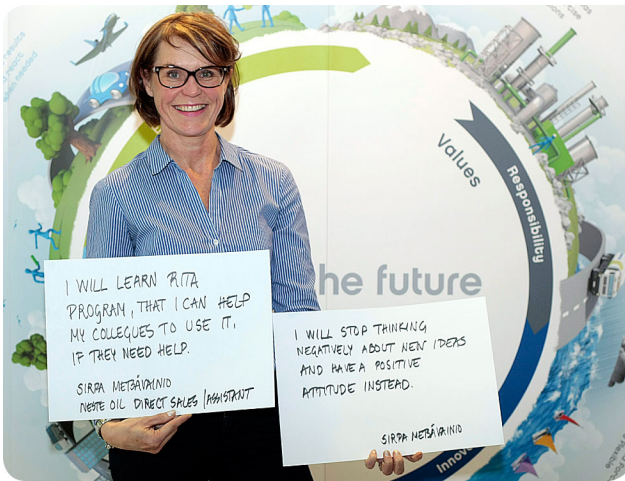 Values
Responsibility
he future
I WILL LEARN RITA
PROGRAM, THAT I CAN HELP
MY COLLEGUES TO USE IT,
IF THEY NEED HELP.
SIRPA METSÄVAINIO
NESTE OIL DIRECT SALES / ASSISTANT
I WILL STOP THINKING
NEGATIVELY ABOUT NEW IDEAS
AND HAVE A POSITIVE
ATTITUDE INSTEAD.
SIRPA METSÄVAINIO
Innov